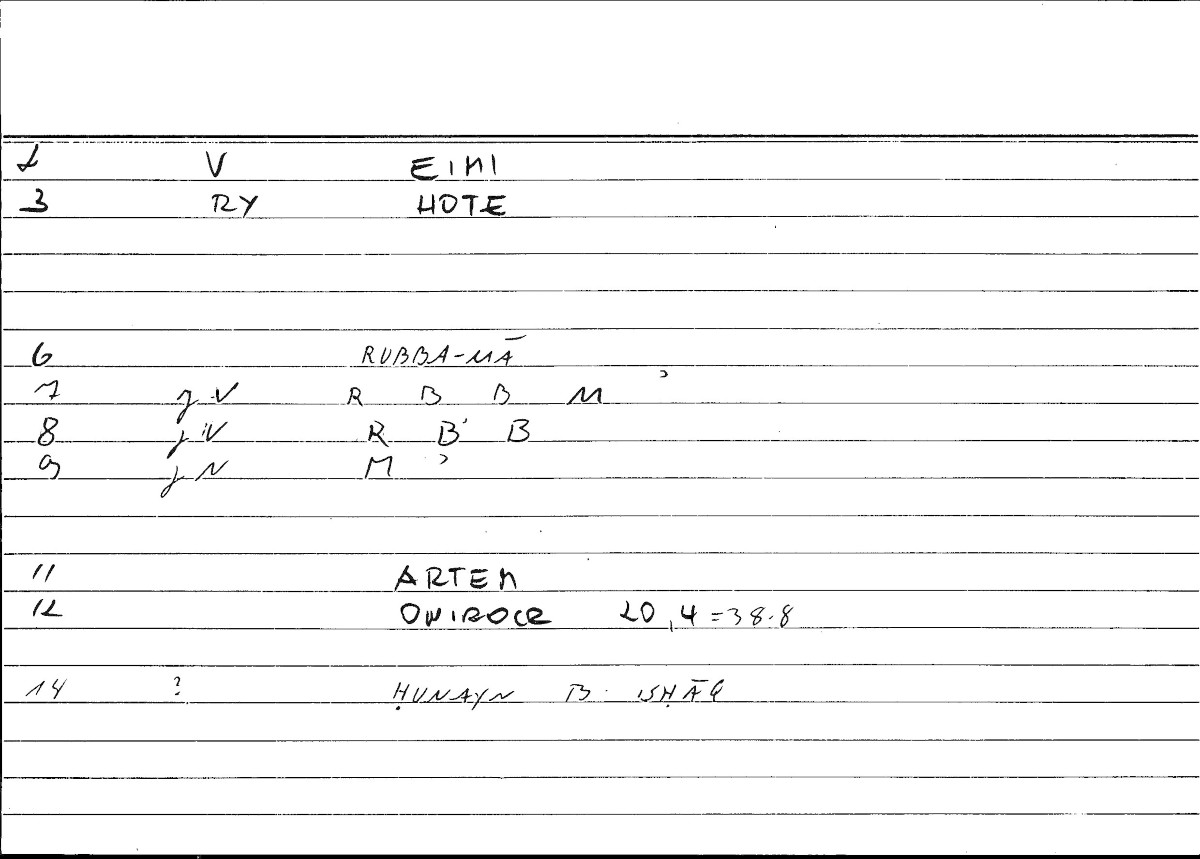 2 V EIMI
3 RY HOTE
6 RUBBA-MĀ
7 g V R B B M ʾ
8 g V R B B
9 g N M ʾ
11 ARTEM
12 ONIROCR 20,4=38.8
14 ? ḤUNAYN B. ISḤĀQ